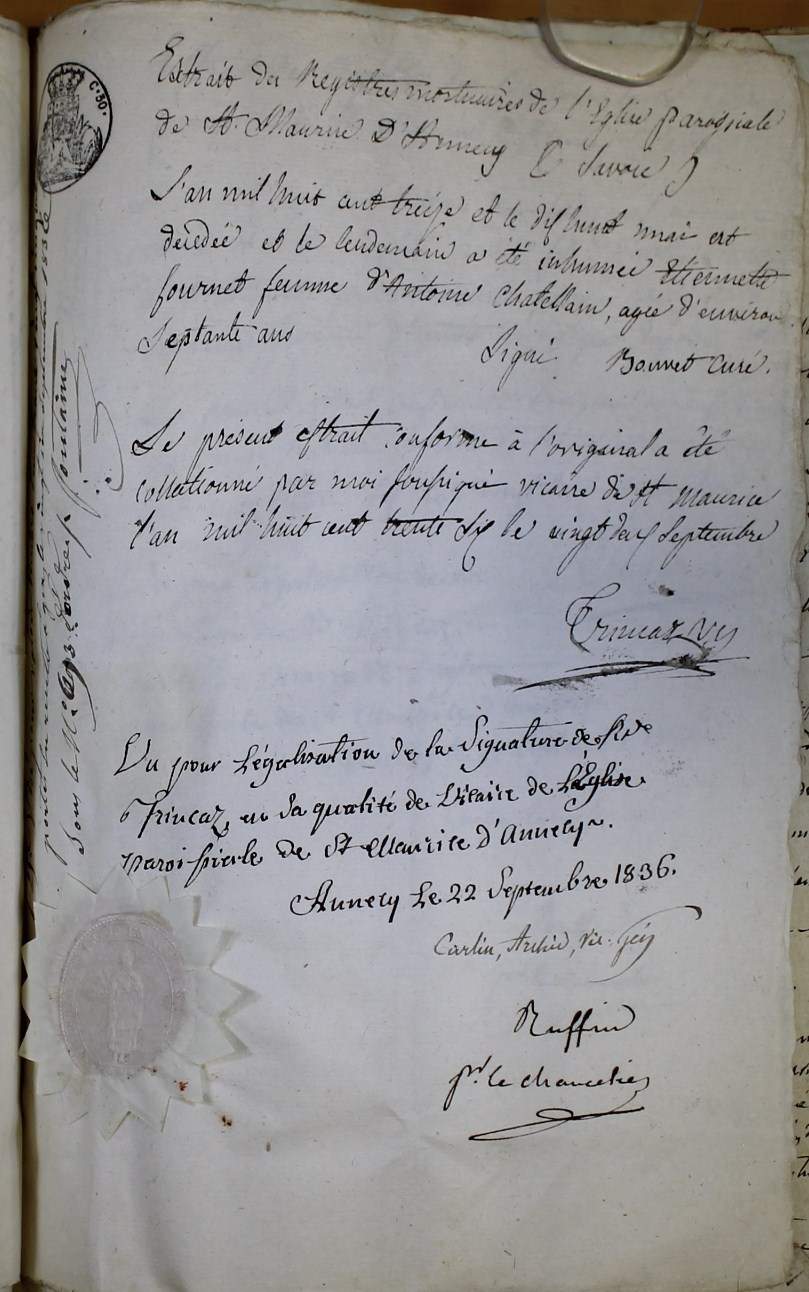 C. 30.
Extrait des Registres mortuaires de l'Eglise paroissiale
de St. Maurice D'Annecy ( Savoie )
L'an mil huit cent treize et le dix huit mai est
décédée et le lendemain a été inhumée Etiennette
fournet femme d'Antoine Chatellain, agée d'environ
Septante ans
Signé Bouvet curé.
Le présent extrait conforme à l'original a été
collationné par moi soussigné vicaire de St Maurice
l'an mil huit cent trente six le vingt deux Septembre
Trincaz
Vu pour Légalisation de la Signature de
Trincaz, en sa qualité de Vicaire de L'Eglise
paroissiale de St Maurice d'Annecy.
Annecy Le 22 Septembre 1836.
Carlin, Archid, Vic. gén
Ruffin
pr. le chancelier
Sous le No